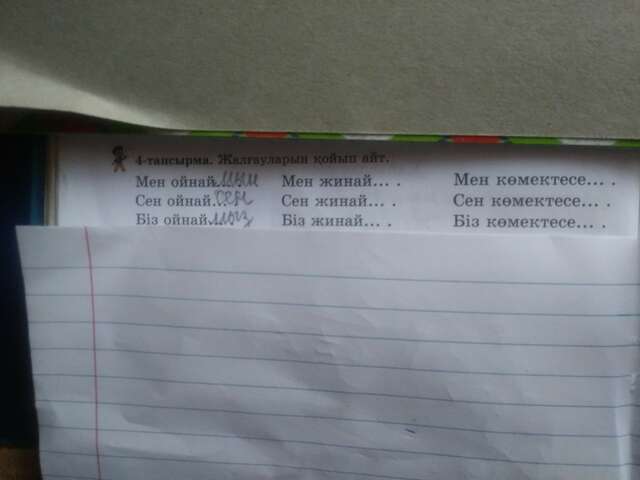 4-тапсырма. Жалғауларын қойып айт.
Мен ойнай.мын Мен жинай... . Мен көмектесе... .
Сен ойнай.сең Сен жинай... . Сен көмектесе... .
Біз ойнай.мыз Біз жинай... . Біз көмектесе... .